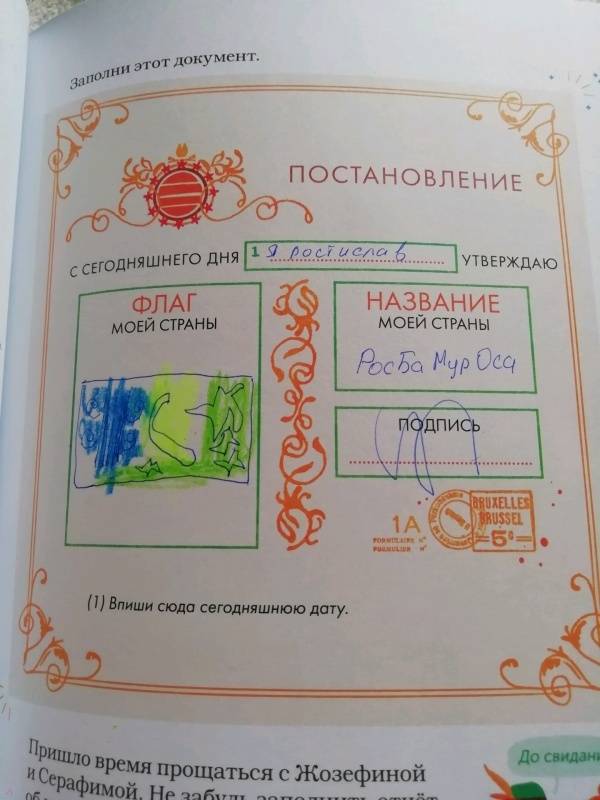 Заполни этот документ.
ПОСТАНОВЛЕНИЕ
С СЕГОДНЯШНЕГО ДНЯ 1 Я Ростислав УТВЕРЖДАЮ
ФЛАГ
МОЕЙ СТРАНЫ
НАЗВАНИЕ
МОЕЙ СТРАНЫ
РосБа Мур Оса
ПОДПИСЬ
1A
FORMULAIRE N°
FORMULIER N°
1
BRUXELLES
BRUSSEL
5c
(1) Впиши сюда сегодняшнюю дату.
Пришло время прощаться с Жозефиной
и Серафимой. Не забудь заполнить отчёт
До свидани